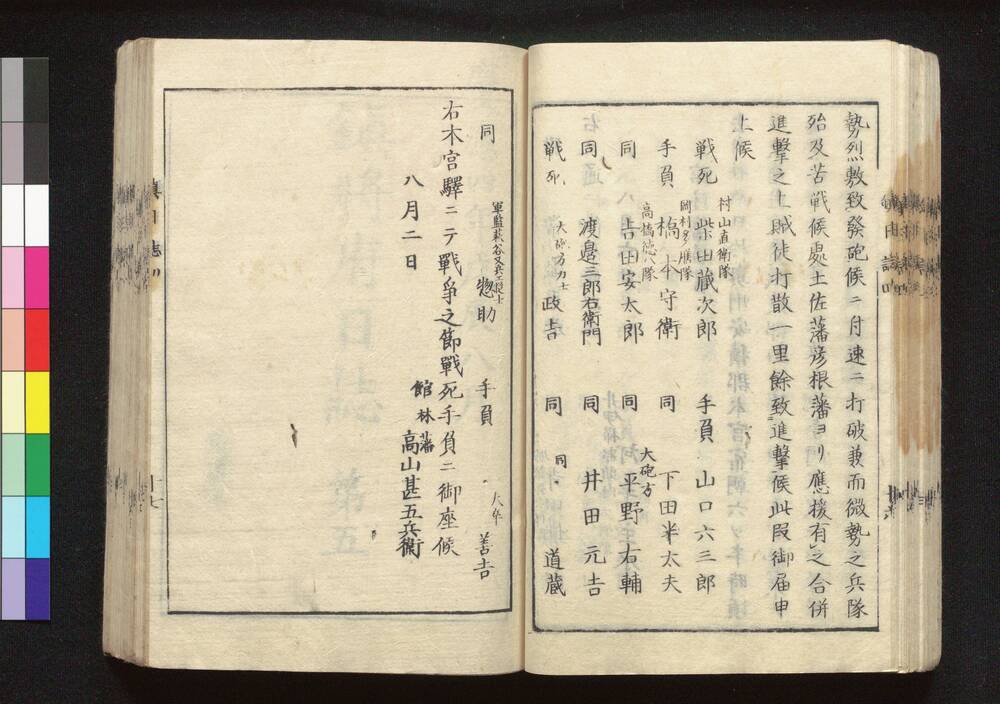 勢烈敷致發砲候ニ付速ニ打破兼而微勢之兵隊
殆及苦戦候處土佐藩彦根藩ヨリ應援有之合併
進撃之上賊徒打散一里餘致進撃候此段御届申
上候
村山直衛隊
戦死 柴田蔵次郎 手負 山口六三郎
岡村多ノ條隊
手負 橋本守衛 同 下田半太夫
高橋徳八隊 大砲方
同 吉田安太郎 同 平野右輔
同 渡邊三郎右衛門 同 井田元吉
大砲方力士 同
戦死 政吉 同 道蔵
軍監萩谷又兵エ従士 大卒
同 惣助 手負 善吉
右本宮驛ニテ戰爭之節戰死手負ニ御座候
館林藩
八月二日 高山甚五兵衛
十七